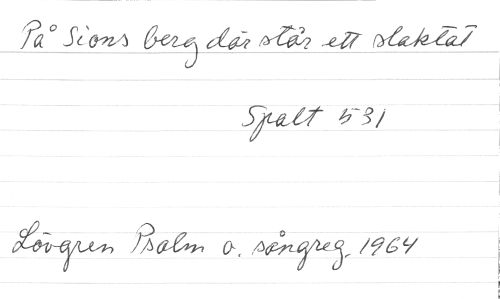 På Sions berg där står ett slaktat
Spalt 531
Lövgren Psalm o. sångreg. 1964